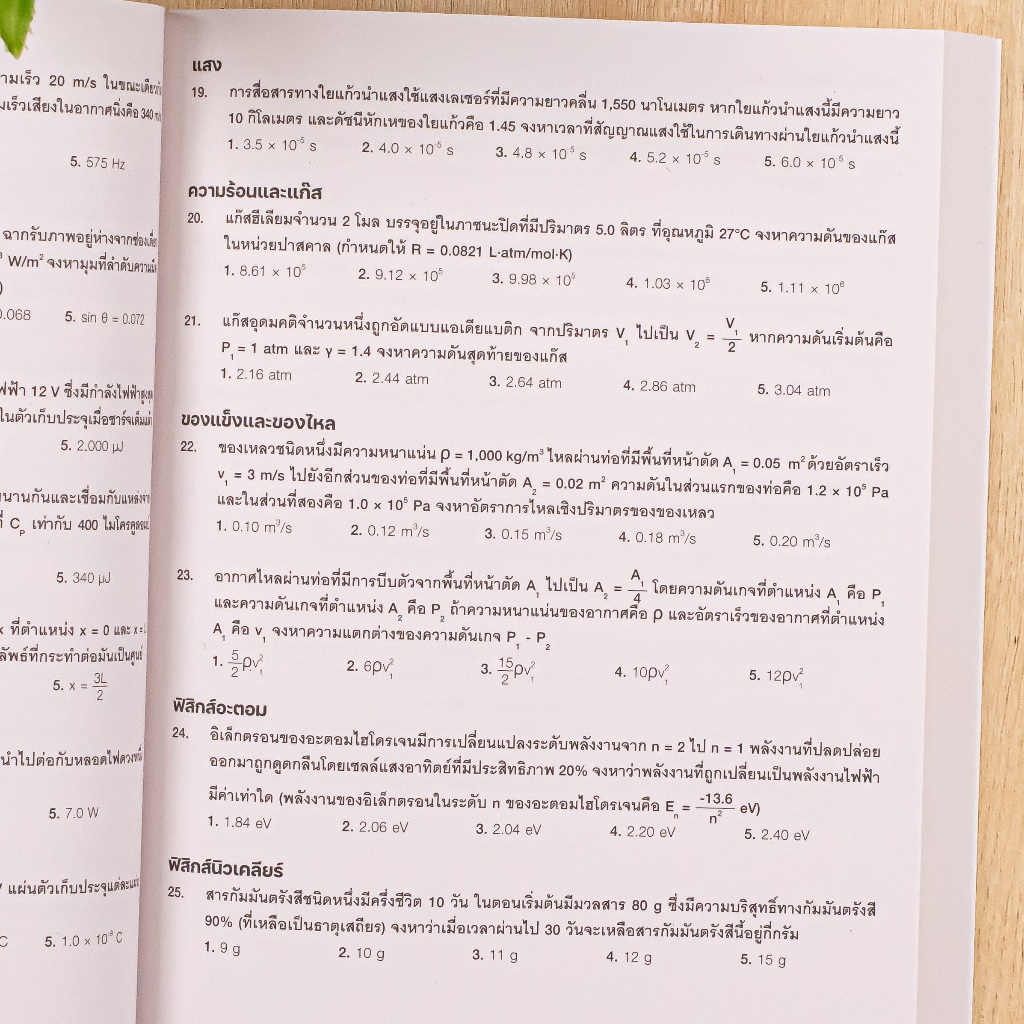 ามเร็ว 20 m/s ในขณะเดียวกัน
มเร็วเสียงในอากาศนิ่งคือ 340 m/s
5. 575 Hz
ฉากรับภาพอยู่ห่างจากช่องเดี่ยว
W/m² จงหามุมที่ลำดับความเข้ม
0.068 5. sin θ = 0.072
ฟฟ้า 12 V ซึ่งมีกำลังไฟฟ้าสูงสุด
ในตัวเก็บประจุเมื่อชาร์จเต็มแล้ว
5. 2,000 μJ
นานกันและเชื่อมกับแหล่งจ่า
ที่ Cₚ เท่ากับ 400 ไมโครคูลอมบ์
5. 340 μJ
x ที่ตำแหน่ง x = 0 และ x = L
ลัพธ์ที่กระทำต่อมันเป็นศูนย์
5. x = 3L/2
นำไปต่อกับหลอดไฟดวงหนึ่ง
5. 7.0 W
แผ่นตัวเก็บประจุแต่ละแผ่น
C 5. 1.0 × 10⁻⁹ C
แสง
19. การสื่อสารทางใยแก้วนำแสงใช้แสงเลเซอร์ที่มีความยาวคลื่น 1,550 นาโนเมตร หากใยแก้วนำแสงนี้มีความยาว
10 กิโลเมตร และดัชนีหักเหของใยแก้วคือ 1.45 จงหาเวลาที่สัญญาณแสงใช้ในการเดินทางผ่านใยแก้วนำแสงนี้
1. 3.5 × 10⁻⁵ s 2. 4.0 × 10⁻⁵ s 3. 4.8 × 10⁻⁵ s 4. 5.2 × 10⁻⁵ s 5. 6.0 × 10⁻⁵ s
ความร้อนและแก๊ส
20. แก๊สฮีเลียมจำนวน 2 โมล บรรจุอยู่ในภาชนะปิดที่มีปริมาตร 5.0 ลิตร ที่อุณหภูมิ 27°C จงหาความดันของแก๊ส
ในหน่วยปาสคาล (กำหนดให้ R = 0.0821 L·atm/mol·K)
1. 8.61 × 10⁵ 2. 9.12 × 10⁵ 3. 9.98 × 10⁵ 4. 1.03 × 10⁶ 5. 1.11 × 10⁶
21. แก๊สอุดมคติจำนวนหนึ่งถูกอัดแบบแอเดียแบติก จากปริมาตร V₁ ไปเป็น V₂ = V₁/2 หากความดันเริ่มต้นคือ
P₁ = 1 atm และ γ = 1.4 จงหาความดันสุดท้ายของแก๊ส
1. 2.16 atm 2. 2.44 atm 3. 2.64 atm 4. 2.86 atm 5. 3.04 atm
ของแข็งและของไหล
22. ของเหลวชนิดหนึ่งมีความหนาแน่น ρ = 1,000 kg/m³ ไหลผ่านท่อที่มีพื้นที่หน้าตัด A₁ = 0.05 m² ด้วยอัตราเร็ว
v₁ = 3 m/s ไปยังอีกส่วนของท่อที่มีพื้นที่หน้าตัด A₂ = 0.02 m² ความดันในส่วนแรกของท่อคือ 1.2 × 10⁵ Pa
และในส่วนที่สองคือ 1.0 × 10⁵ Pa จงหาอัตราการไหลเชิงปริมาตรของของเหลว
1. 0.10 m³/s 2. 0.12 m³/s 3. 0.15 m³/s 4. 0.18 m³/s 5. 0.20 m³/s
23. อากาศไหลผ่านท่อที่มีการบีบตัวจากพื้นที่หน้าตัด A₁ ไปเป็น A₂ = A₁/4 โดยความดันเกจที่ตำแหน่ง A₁ คือ P₁
และความดันเกจที่ตำแหน่ง A₂ คือ P₂ ถ้าความหนาแน่นของอากาศคือ ρ และอัตราเร็วของอากาศที่ตำแหน่ง
A₁ คือ v₁ จงหาความแตกต่างของความดันเกจ P₁ - P₂
1. 5/2 ρv₁² 2. 6ρv₁² 3. 15/2 ρv₁² 4. 10ρv₁² 5. 12ρv₁²
ฟิสิกส์อะตอม
24. อิเล็กตรอนของอะตอมไฮโดรเจนมีการเปลี่ยนแปลงระดับพลังงานจาก n = 2 ไป n = 1 พลังงานที่ปลดปล่อย
ออกมาถูกดูดกลืนโดยเซลล์แสงอาทิตย์ที่มีประสิทธิภาพ 20% จงหาว่าพลังงานที่ถูกเปลี่ยนเป็นพลังงานไฟฟ้า
มีค่าเท่าใด (พลังงานของอิเล็กตรอนในระดับ n ของอะตอมไฮโดรเจนคือ Eₙ = -13.6/n² eV)
1. 1.84 eV 2. 2.06 eV 3. 2.04 eV 4. 2.20 eV 5. 2.40 eV
ฟิสิกส์นิวเคลียร์
25. สารกัมมันตรังสีชนิดหนึ่งมีครึ่งชีวิต 10 วัน ในตอนเริ่มต้นมีมวลสาร 80 g ซึ่งมีความบริสุทธิ์ทางกัมมันตรังสี
90% (ที่เหลือเป็นธาตุเสถียร) จงหาว่าเมื่อเวลาผ่านไป 30 วันจะเหลือสารกัมมันตรังสีนี้อยู่กี่กรัม
1. 9 g 2. 10 g 3. 11 g 4. 12 g 5. 15 g